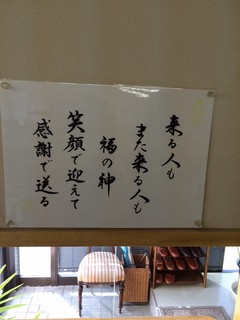 来る人も
また来る人も
福の神
笑顔で迎えて
感謝で送る